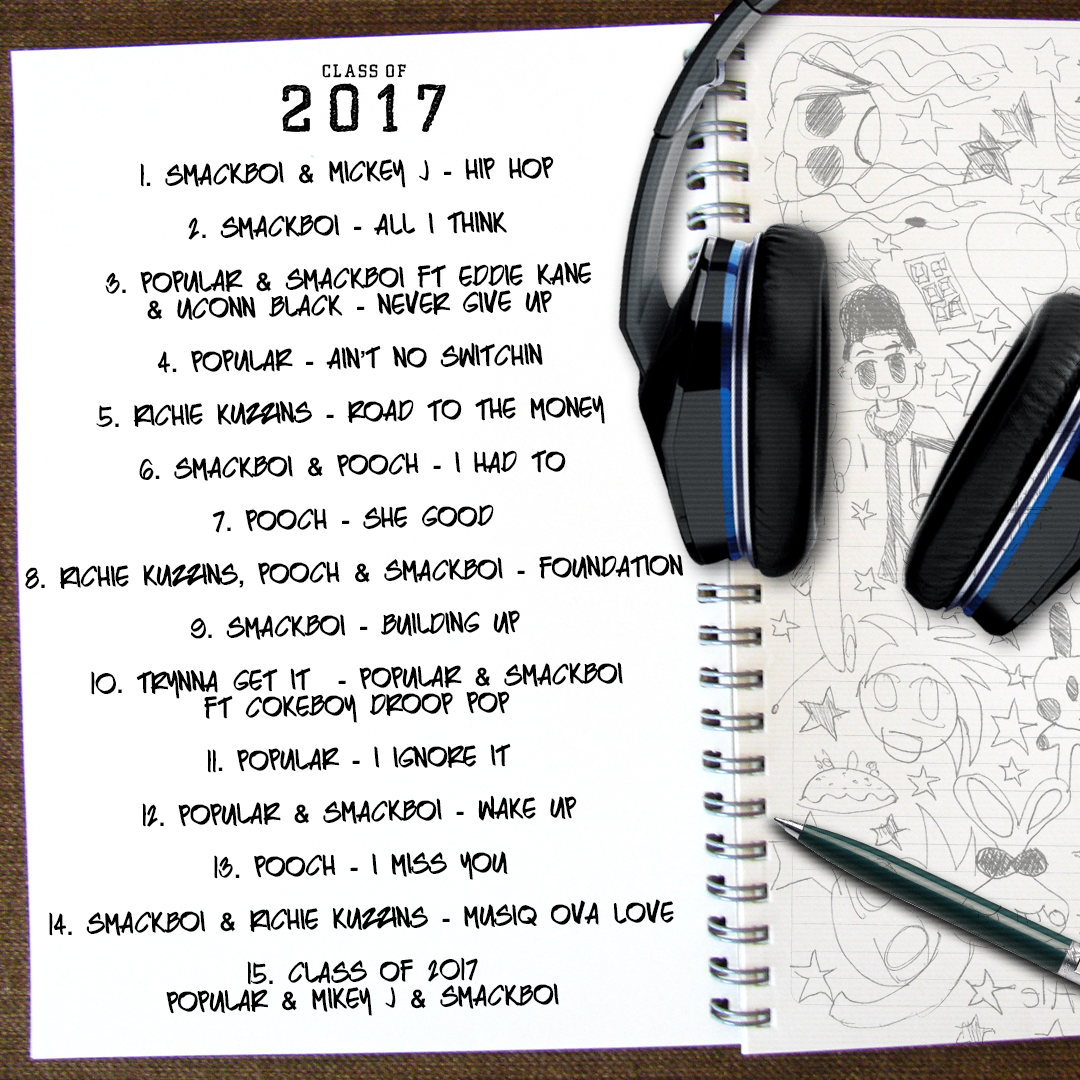 CLASS OF
2017
1. SMACKBOI & MICKEY J - HIP HOP
2. SMACKBOI - ALL I THINK
3. POPULAR & SMACKBOI FT EDDIE KANE
& UCONN BLACK - NEVER GIVE UP
4. POPULAR - AIN'T NO SWITCHIN
5. RICHIE KUZZINS - ROAD TO THE MONEY
6. SMACKBOI & POOCH - I HAD TO
7. POOCH - SHE GOOD
8. RICHIE KUZZINS, POOCH & SMACKBOI - FOUNDATION
9. SMACKBOI - BUILDING UP
10. TRYNNA GET IT - POPULAR & SMACKBOI
FT COKEBOY DROOP POP
11. POPULAR - I IGNORE IT
12. POPULAR & SMACKBOI - WAKE UP
13. POOCH - I MISS YOU
14. SMACKBOI & RICHIE KUZZINS - MUSIQ OVA LOVE
15. CLASS OF 2017
POPULAR & MIKEY J & SMACKBOI